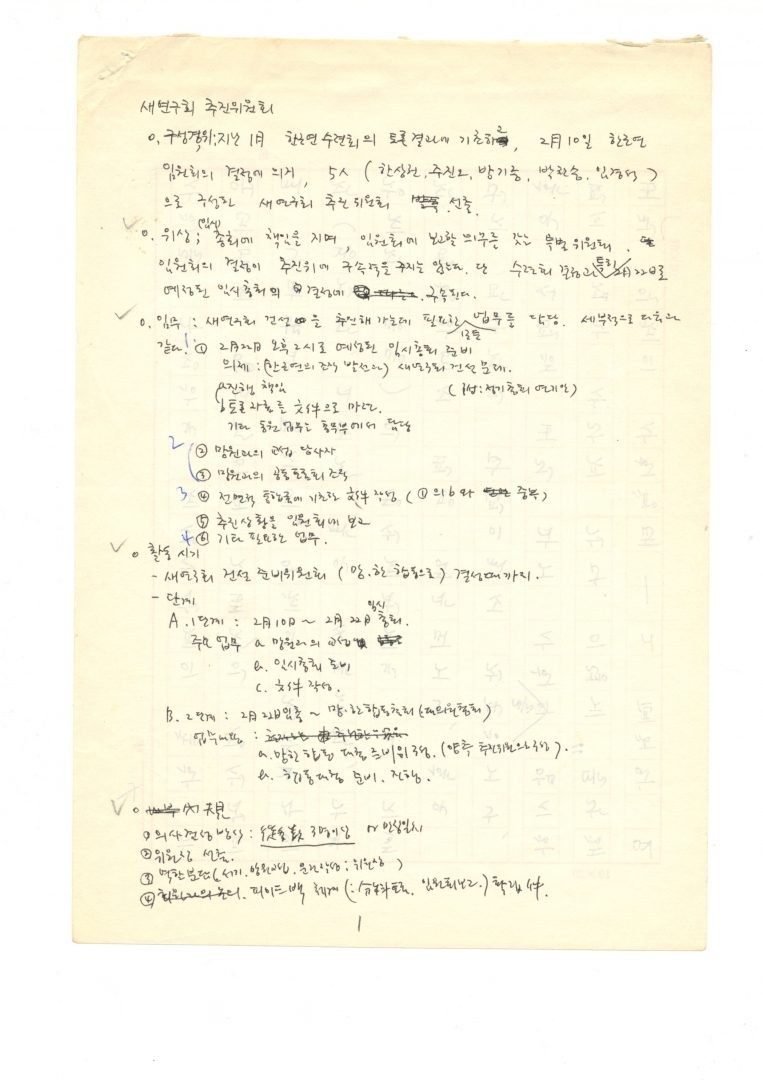 새연구회 추진위원회
o. 구성경위; 지난 1月 한근연 수련회의 토론결과에 기초하고, 2月 10일 한근연
임원회의 결정에 의거, 5人 (한상헌, 주진오, 방기중, 박찬승, 임경석)
으로 구성된 새연구회 추진위원회 선출.
o. 위상; (임시) 총회에 책임을 지며, 임원회에 보고할 의무를 갖는 특별위원회.
임원회의 결정이 추진위에 구속력을 주지는 않는다. 단 수련회 결정과 특히 2月 22日로
예정된 임시총회의 결정에 구속된다.
o. 임무 : 새연구회 건설을 추진해 가는데 필요한 모든 업무를 담당. 세부적으로 다음과
같다! ① 2月 22日 오후 2시로 예정된 임시총회 준비
의제 : (한근연의 조직 발전과) 새연구회 건설 문제.
a 진행 책임 (정기총회 연기안)
b 토론자료를 文件으로 마련.
기타 동원 업무는 총무부에서 담당
2 ② 망원과의 교섭 당사자
③ 망원과의 공동토론회 조직
3 ④ 전면적 통합론에 기초한 文件 작성 (①의 b와 중복)
⑤ 추진상황을 임원회에 보고
4 ⑥ 기타 필요한 업무.
o 활동 시기
- 새연구회 건설 준비위원회 (망.한 합동으로) 결성때까지.
- 단계
A. 1단계 : 2月 10日 ~ 2月 22日 임시총회.
주요업무 a. 망원과의 교섭
b. 임시총회 준비
c. 文件 작성.
B. 2단계 : 2月 22日 임총 ~ 망.한 합동총회 (대의원총회)
업무내용 :
a. 망한 합동 대총 준비위 구성. (양측 추진위원으로 구성).
b. 합동대총 준비. 진행.
o 內規
① 의사결정 방식 : 3명이상 or 만장일치
② 위원장 선출.
③ 역할분담 (서기, 망원교섭, 문건작성; 위원장)
④ 피이드백 체계 ( 임원회보고.) 확립件.
1